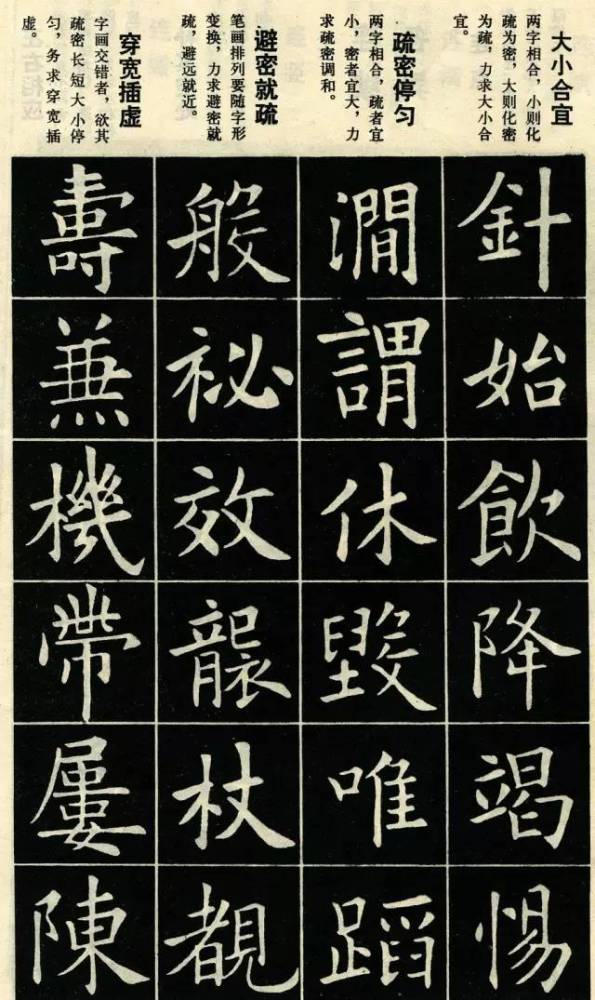 大小合宜
两字相合，小则化
疏为密，大则化密
为疏，力求大小合
宜。
針始飲降竭惕
疏密停匀
两字相合，疏者宜
小，密者宜大，力
求疏密调和。
澗謂休毀唯蹈
避密就疏
笔画排列要随字形
变换，力求避密就
疏，避远就近。
般祕效襲杖覩
穿宽插虚
字画交错者，欲其
疏密长短大小停
匀，务求穿宽插
虚。
壽兼機帶屢陳